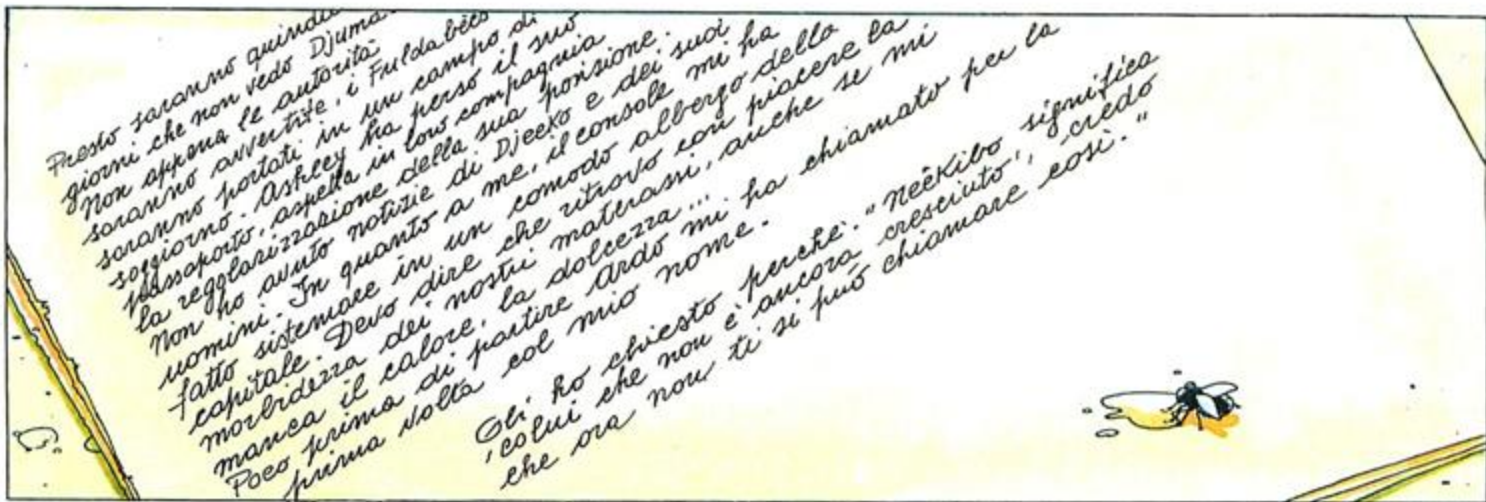 Presto saranno quindici
giorni che non vedo Djuma.
Non appena le autorità
saranno avvertite, i Fuldabéco
saranno portati in un campo di
soggiorno. Ashley ha perso il suo
passaporto, aspetta in low compagnia
la regolarizzazione della sua posizione.
Non ho avuto notizie di Djeeko e dei suoi
uomini. In quanto a me, il console mi ha
fatto sistemare in un comodo albergo della
capitale. Devo dire che ritrovo con piacere la
morbidezza dei nostri materassi, anche se mi
manca il calore, la dolcezza...
Poco prima di partire Ardo mi ha chiamato per la
prima volta col mio nome.
Gli ho chiesto perchè. "Neêkibo significa
'colui che non è ancora cresciuto', credo
che ora non ti si può chiamare così."